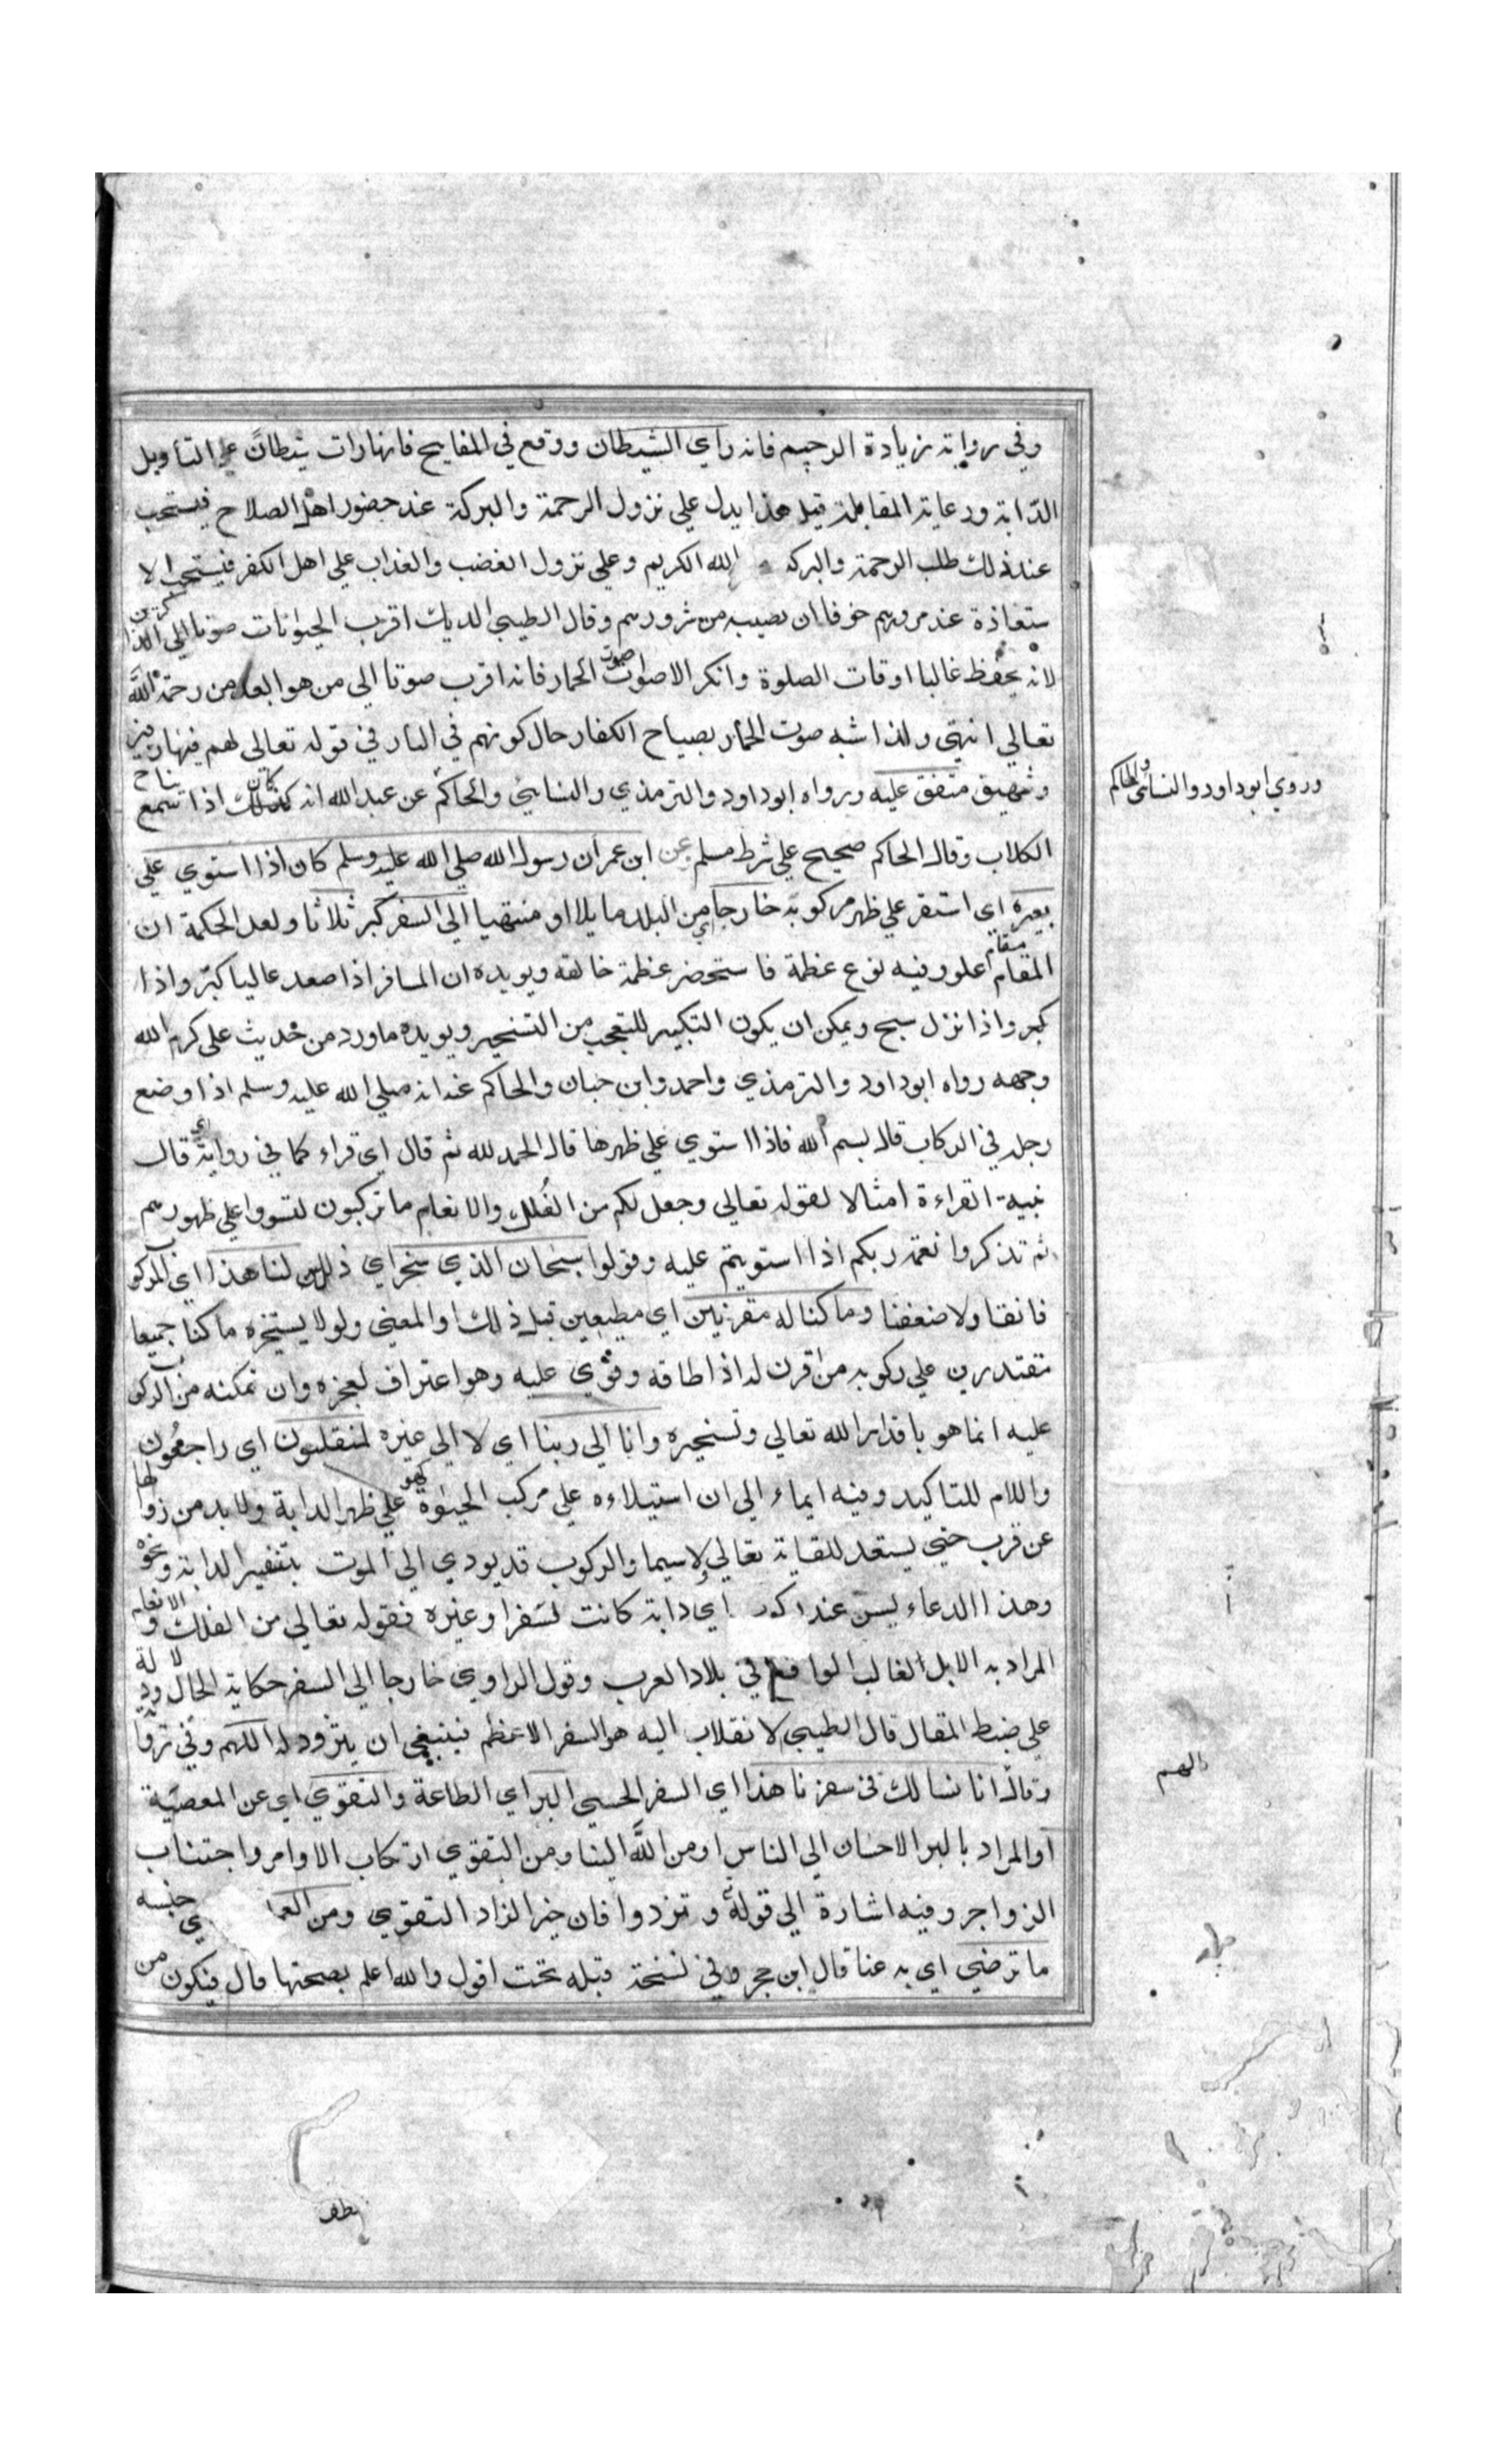 وفي رواية زيادة الرجيم فانه راي الشيطان ووقع في المفاتيح فانها رات شيطانًا علي التأويل
الدّابة ورعاية المقابلة قيل هذا يدل علي نزول الرحمة والبركة عند حضور اهل الصلاح فيستحب
عند ذلك طلب الرحمة والبركة الله الكريم وعلي نزول الغضب والعذاب علي اهل الكفر فيستحب الا
ستعاذة عند مرورهم خوفا ان يصيبه من شرورهم وقال الطيبي الديك اقرب الحيوانات صوتا الي الذاكرين
لانه يحفظ غالبا اوقات الصلوة وانكر الاصوات صوت الحمار فانه اقرب صوتا الي من هو ابعد من رحمة الله
تعالي انتهي ولذا شبه صوت الحمار بصياح الكفار حال كونهم في النار في قوله تعالي لهم فيها زفير
وشهيق متفق عليه ورواه ابو داود والترمذي والنسائي والحاكم عن عبد الله انه كان كذلك اذا سمع نباح
الكلاب وقال الحاكم صحيح علي شرط مسلم عن ابن عمر ان رسول الله صلي الله عليه وسلم كان اذا استوي علي
بعيره اي استقر علي ظهر مركوبه خارجا اي من البلد مايلا او منتهيا الي السفر كبر ثلاثا ولعل الحكمة ان
المقام مقام علو وفيه نوع عظمة فاستحضر عظمة خالقه ويويده ان المسافر اذا صعد عاليا كبّر واذا
كبر واذا نزل سبح ويمكن ان يكون التكبير للتعجب من التسخير ويويده ما ورد من حديث علي كرم الله
وجهه رواه ابو داود والترمذي واحمد وابن حبان والحاكم عنه انه صلي الله عليه وسلم اذا وضع
رجله في الركاب قال بسم الله فاذا استوي علي ظهرها قال الحمد لله ثم قال اي قراء كما في رواية اي قال
بنية القراءة امتثالا لقوله تعالي وجعل لكم من الفُلك والانعام ما تركبون لتستووا علي ظهورهم
ثم تذكروا نعمة ربكم اذا استويتم عليه وقولوا سبحان الذي سخر اي ذلل لنا هذا اي المركوب
فانقنا ولا ضعفنا وما كنا له مقرنين اي مطيعين قبل ذلك او المعني ولولا يستخره ما كنا جميعا
مقتدرين علي ركوبه من اقرن له اذا طاقه وقوي عليه وهو اعتراف لعجزه وان تمكنه من الركوب
عليه انما هو باقدار الله تعالي وتسخيره وانا الي ربنا اي لا الي غيره لمنقلبون اي راجعُون
واللام للتاكيد وفيه ايماء الي ان استيلاءه علي مركب الحيوة كهو علي ظهر الدابة ولا بد من زوالها
عن قرب حتي يستعد للقائه تعالي لا سيما والركوب قد يودي الي الموت بتنفير الدابة ونحوه
وهذا الدعاء يسن عند اي دابة كانت لسفر او غيره فقوله تعالي من الفلك والانعام
المراد به الابل الغالب الواقع في بلاد العرب وقول الراوي خارجا الي السفر حكاية الحال ودلالة
علي ضبط المقال قال الطيبي لانقلاب اليه هو السفر الاعظم فينبغي ان يتزود له اللهم
وقال انا نسالك في سفرنا هذا اي السفر الحسي البر اي الطاعة والتقوي اي عن المعصية
او المراد بالبر الاحسان الي الناس او من الله الينا ومن التقوي ارتكاب الاوامر واجتناب
الزواجر وفيه اشارة الي قوله وتزودوا فان خير الزاد التقوي ومن جنسه
ما ترضي اي به عنا قال ابن حجر وفي نسخة قبله تحت اقول والله اعلم بصحتها قال فيكون من
وروي ابو داود والنسائي والحاكم
اللهم